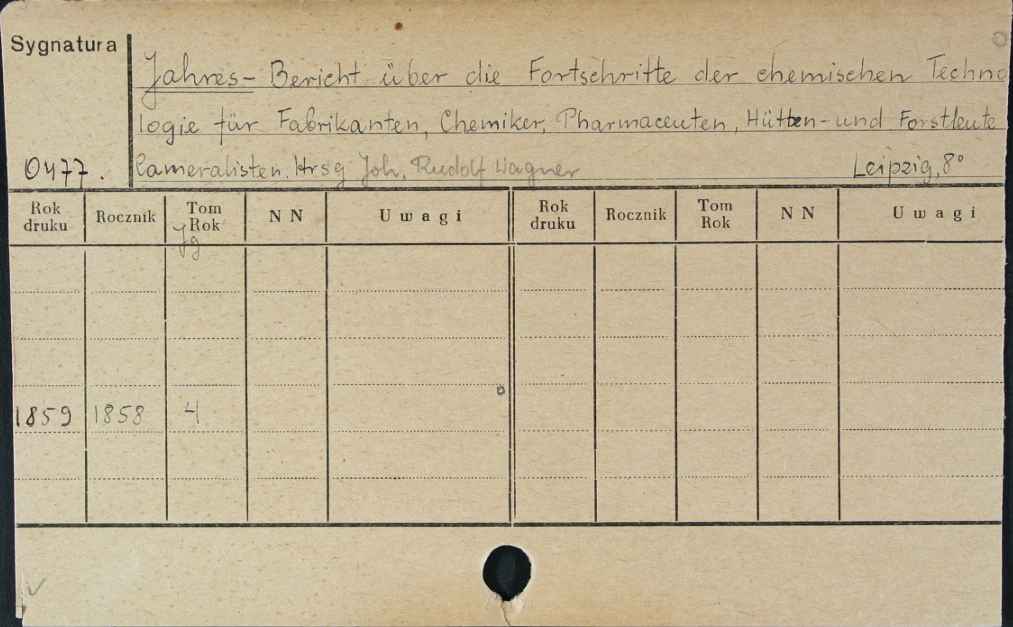 Sygnatura
Jahres-Bericht über die Fortschritte der chemischen Techno
logie für Fabrikanten, Chemiker, Pharmaceuten, Hütten-und Forstleute
0477. Cameralisten. Hrsg Joh. Rudolf Wagner Leipzig, 8°
Rok druku Rocznik Tom Rok NN Uwagi Rok druku Rocznik Tom Rok NN Uwagi
Jg
1859 1858 4